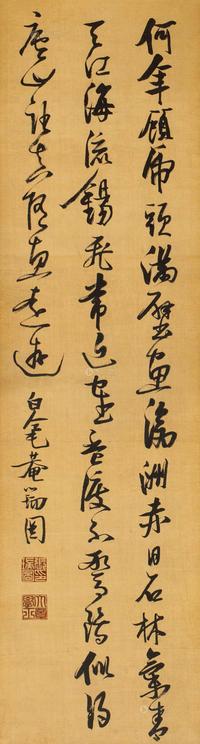 何年顧虎頭滿壁畫滄洲赤日石林氣青
天江海流錫飛常近鶴杯渡不驚鷗似得
廬山路真隨惠遠遊 白毫菴瑞圖